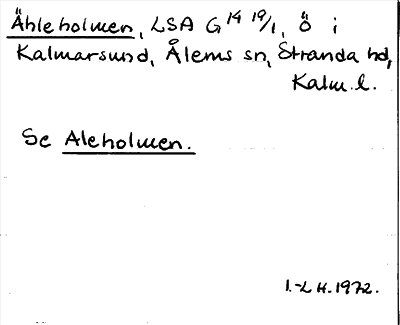 Åhleholmen, LSA G 14 19/1, Ö i
Kalmarsund, Ålems sn, Stranda hd,
Kalm. l.
Se Aleholmen.
I.-L H. 1972.